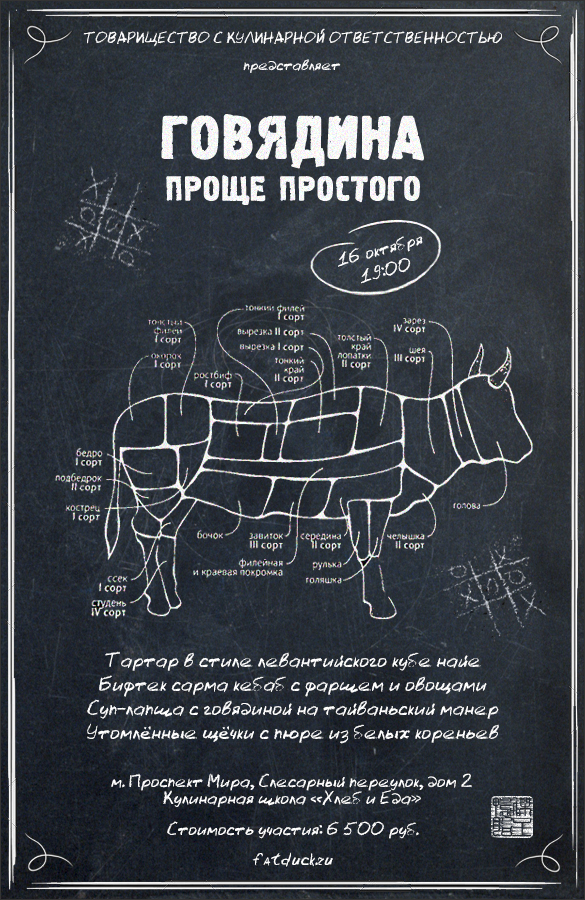 ТОВАРИЩЕСТВО С КУЛИНАРНОЙ ОТВЕТСТВЕННОСТЬЮ
представляет
ГОВЯДИНА
ПРОЩЕ ПРОСТОГО
16 октября
19:00
тонкий филей
I сорт
толстый
филей
I сорт
вырезка II сорт
вырезка I сорт
зарез
IV сорт
толстый
край
лопатки
II сорт
шея
III сорт
окорок
I сорт
тонкий
край
II сорт
ростбиф
I сорт
бедро
I сорт
подбедрок
II сорт
кострец
I сорт
голова
бочок
завиток
III сорт
середина
II сорт
челышка
II сорт
филейная
и краевая покромка
рулька
голяшка
ссек
I сорт
студень
IV сорт
Тартар в стиле левантийского кубе найе
Бифтек сарма кебаб с фаршем и овощами
Суп-лапша с говядиной на тайваньский манер
Утомлённые щёчки с пюре из белых кореньев
м. Проспект Мира, Слесарный переулок, дом 2
Кулинарная школа «Хлеб и Еда»
Стоимость участия: 6 500 руб.
fatduck.ru